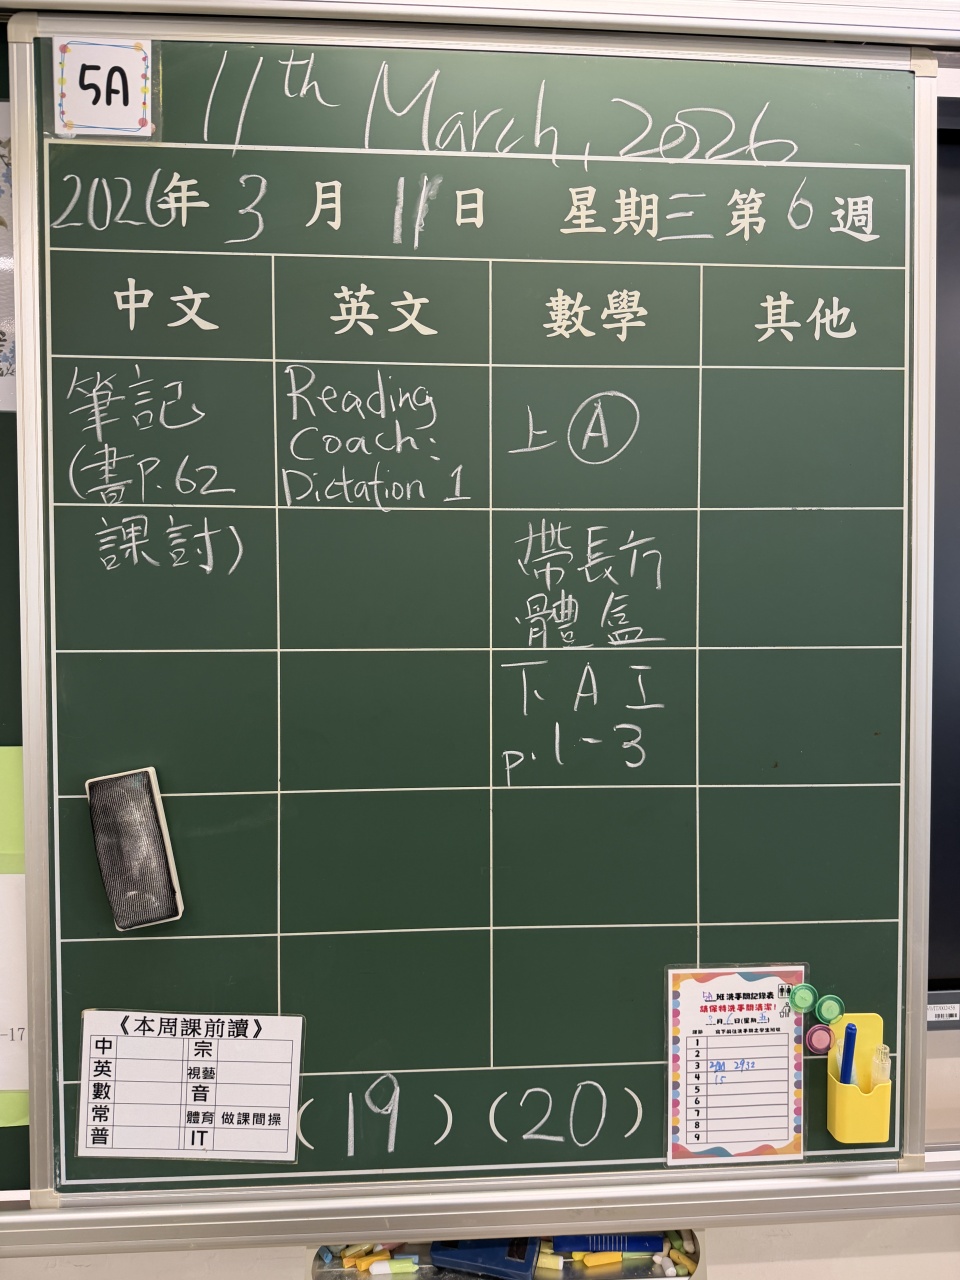 5A
11th March, 2026
2026年 3 月 11 日 星期三 第 6 週
中文
英文
數學
其他
筆記
(書P.62
課討)
Reading
Coach:
Dictation 1
上 Ⓐ
帶長方
體盒
下 A 工
p.1-3
《本周課前讀》
中 宗
英 視藝
數 音
常 體育 做課間操
普 IT
(19) (20)
5A班洗手間記錄表
請保持洗手間清潔!
1
2
3
4 15
5
6
7
8
9
-17